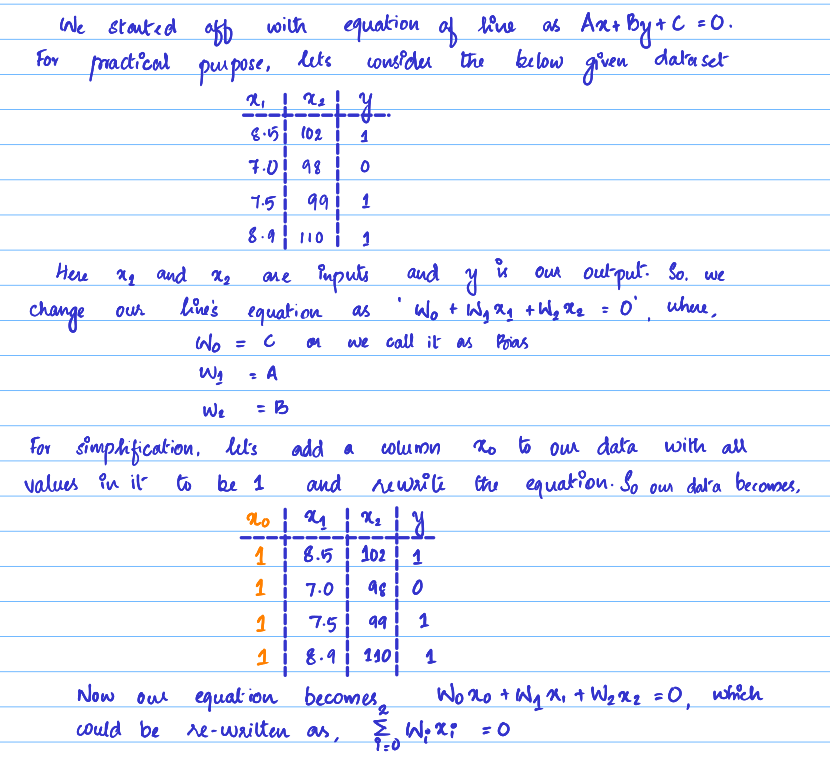 We started off with equation of line as Ax + By + C = 0.
For practical purpose, lets consider the below given dataset
x₁ | x₂ | y
8.5 | 102 | 1
7.0 | 98 | 0
7.5 | 99 | 1
8.9 | 110 | 1
Here x₁ and x₂ are inputs and y is our output. So, we
change our line's equation as 'W₀ + W₁x₁ + W₂x₂ = 0', where,
W₀ = C or we call it as Bias
W₁ = A
W₂ = B
For simplification, let's add a column x₀ to our data with all
values in it to be 1 and rewrite the equation. So our data becomes,
x₀ | x₁ | x₂ | y
1 | 8.5 | 102 | 1
1 | 7.0 | 98 | 0
1 | 7.5 | 99 | 1
1 | 8.9 | 110 | 1
Now our equation becomes, W₀x₀ + W₁x₁ + W₂x₂ = 0, which
could be re-written as, ∑²ᵢ₌₀ Wᵢxᵢ = 0